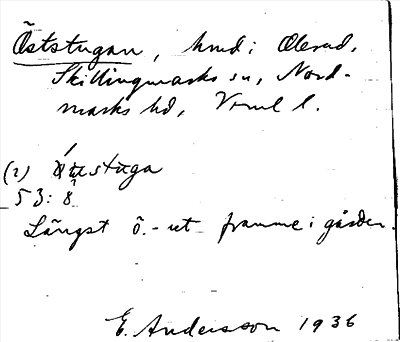 Öststugan, hmd i Ölerud,
Skillingmarks sn, Nord-
marks hd, Vrml l.
(2)
53:8
Längst ö.-ut framme i gården.
E. Andersson 1936